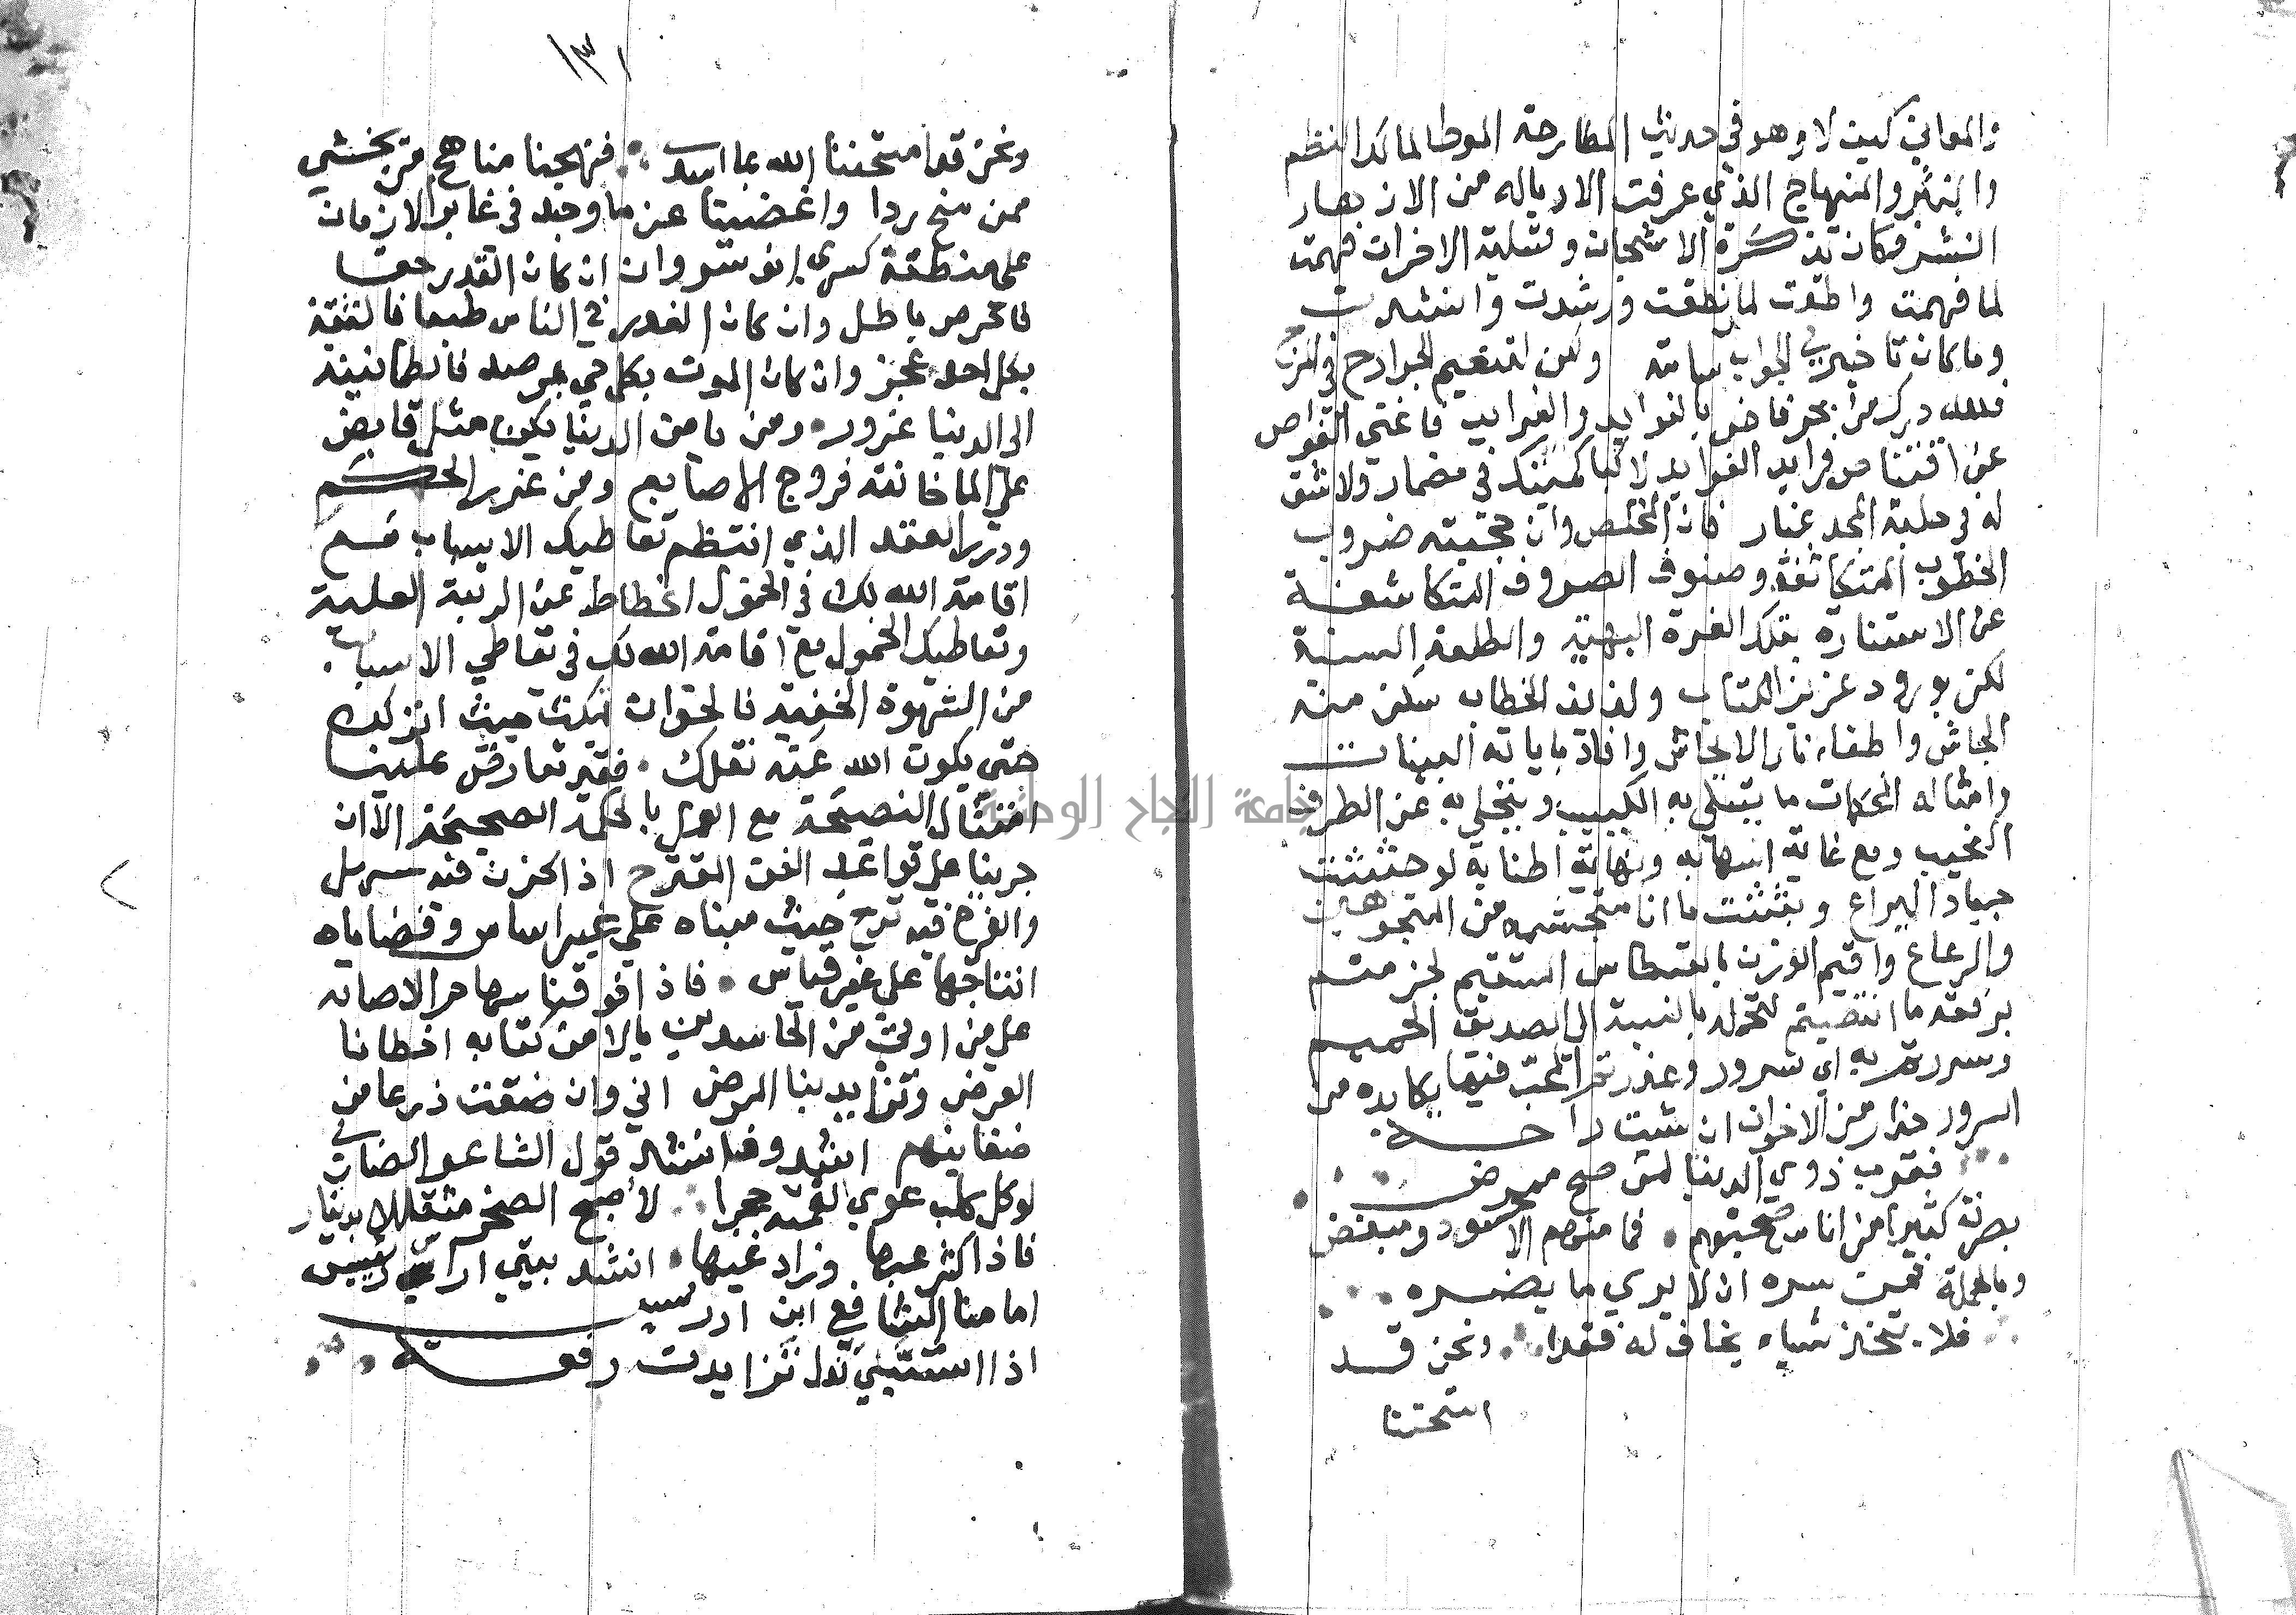 والمعاني كيف لا وهو في حديث المطارحة الموطا لمالك النظم
والنثر والمنهاج الذي عرفت الادباله من الازهار
النشر فكان تذكرة الاشجان وتسلية الاخوان فهمت
لما فهمت واطقت لما نطقت ورشدت وانشدت
وما كان تاخيري الجواب سامة ولكن لتنعيم الجوارح في
فلله درك من بحر فاض بالفوايد والغرايب فاغنى الغواص
عن اقتناص فرايد الفوايد لاكبا كميتك في مضمار ولا شق
له في حلبة المجد غبار فان المخلص وان حجبته ضروب
الخطوب المتكاثفة وصنوف الصروف المتكاشفة
عن الاستنارة بتلك الغرة البهية والطلعة السنية
لكن بورود عزيز الكتاب ولذيذ الخطاب سكن منه
الجاش واطفاء نار الايحاش وافاد باياته البينات
وامثاله المحكمات ما يتسلى به الكئيب وينجلي به عن الطرف
النحيب ومع غاية اسهابه ونهاية اطنابه لو حثثت
جياد اليراع وبثثت ما انا متجشمه من المتجوهين
والرعاع واقيم الوزن بالقسطاس المستقيم لجزمتم
برفعه ما انتضيتم للتحول بالنسبة الى الصديق الحميم
وسررتم به اي سرور وعذرتم المحب فيما يكابده من
السرور حذار من الاخوان ان شئت راحة
فقرب ذوي الدنيا لمن صح ممرض
بصرت كثيرا من اناس صحبتهم فما منهم الا حسود ومبغض
وبالجملة فمن سره ان لا يرى ما يضره
فلا يتخذ شياء يخاف له فقدا ونحن قد
امتحننا
١٣١
ونحن قد امتحننا الله بما اسدى فنهجنا مناهج من يخشى
ممن منح ردا واغضينا عن ما وجد في غابر الازمان
على منطقة كسرى انوشروان ان كان القدر حقا
فالحرص باطل وان كان الغدر في الناس طبعا فالثقة
بكل احد عجز وان كان الموت بكل حي برصد فالطمانينة
الى الدنيا غرور ومن يامن الدنيا يكون مثل قابض
على الما خانته فروج الاصابع ومن غرر الحكم
ودرر العقد الذي انتظم تعاطيك الاسباب مع
اقامة الله لك في الخمول انحطاط عن الرتبة العلية
وتعاطيك الخمول مع اقامة الله لك في تعاطي الاسباب
من الشهوة الخفية فالحق ان تمكث حيث انزلك
حتى يكون الله عنه نقلك فقير تعارض علينا
امتثال النصيحة مع العمل بالحكمة الصحيحة الا ان
جرينا على قواعد الفن المقترح اذ الحزن فيه سرمل
والفرح فيه ترح حيث مبناه على غير اساس وقضاياه
انتاجها على غير قياس فاذا فوقنا سهام الاصابة
على من اوتي من الحاسدين بالامن كتابه اخطانا
الغرض وتزايد بنا المرض اني وان ضقت ذرعا من
ضغاينهم انشد وقد استشهد قول الشاعر الضابي
لو كل كلب عوى القمته حجرا لاصبح الصخر مثقالا بدينار
فاذا كثر عيها وزاد غيها انشد بيتي الرئيس
امامنا الشافعي ابن ادريس
اذا سبني نذل تزايدت رفعة
جامعة النجاح الوطنية